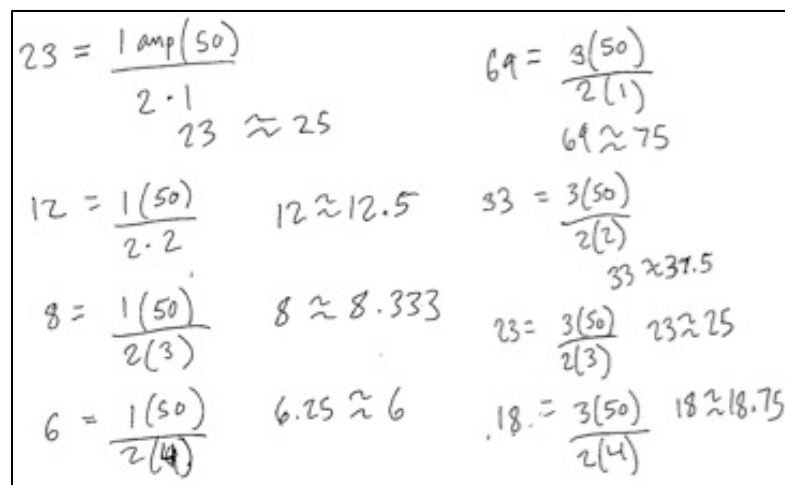 23 = 1 amp(50) / 2·1
23 ≈ 25
12 = 1(50) / 2·2 12 ≈ 12.5
8 = 1(50) / 2(3) 8 ≈ 8.333
6 = 1(50) / 2(4) 6.25 ≈ 6
69 = 3(50) / 2(1)
69 ≈ 75
33 = 3(50) / 2(2)
33 ≈ 37.5
23 = 3(50) / 2(3) 23 ≈ 25
18 = 3(50) / 2(4) 18 ≈ 18.75